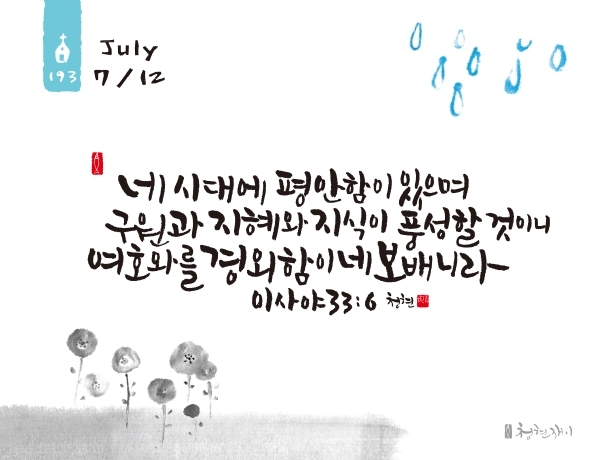 193
July
7/12
네 시대에 평안함이 있으며
구원과 지혜와 지식이 풍성할 것이니
여호와를 경외함이 네 보배니라
이사야33:6 청현
청현재이